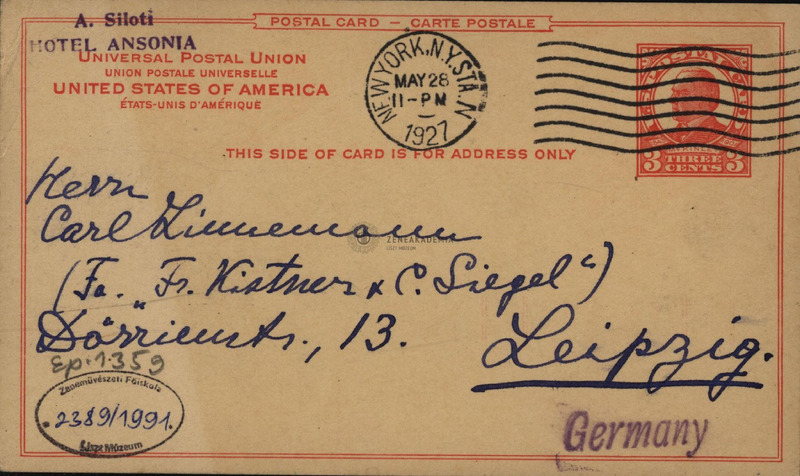 A. Siloti
HOTEL ANSONIA
POSTAL CARD — CARTE POSTALE
UNIVERSAL POSTAL UNION
UNION POSTALE UNIVERSELLE
UNITED STATES OF AMERICA
ÉTATS-UNIS D'AMÉRIQUE
NEW YORK, N.Y. STA. N
MAY 28
11-PM
1927
THIS SIDE OF CARD IS FOR ADDRESS ONLY
3 THREE CENTS 3
Herrn
Carl Linnemann
ZENEAKADÉMIA
LISZT MÚZEUM
(Fa. „Fr. Kistner & C. Siegel“)
Dörrienstr., 13.
Leipzig.
Ep. 1.359
Zeneművészeti Főiskola
2389/1991.
Liszt Múzeum
Germany